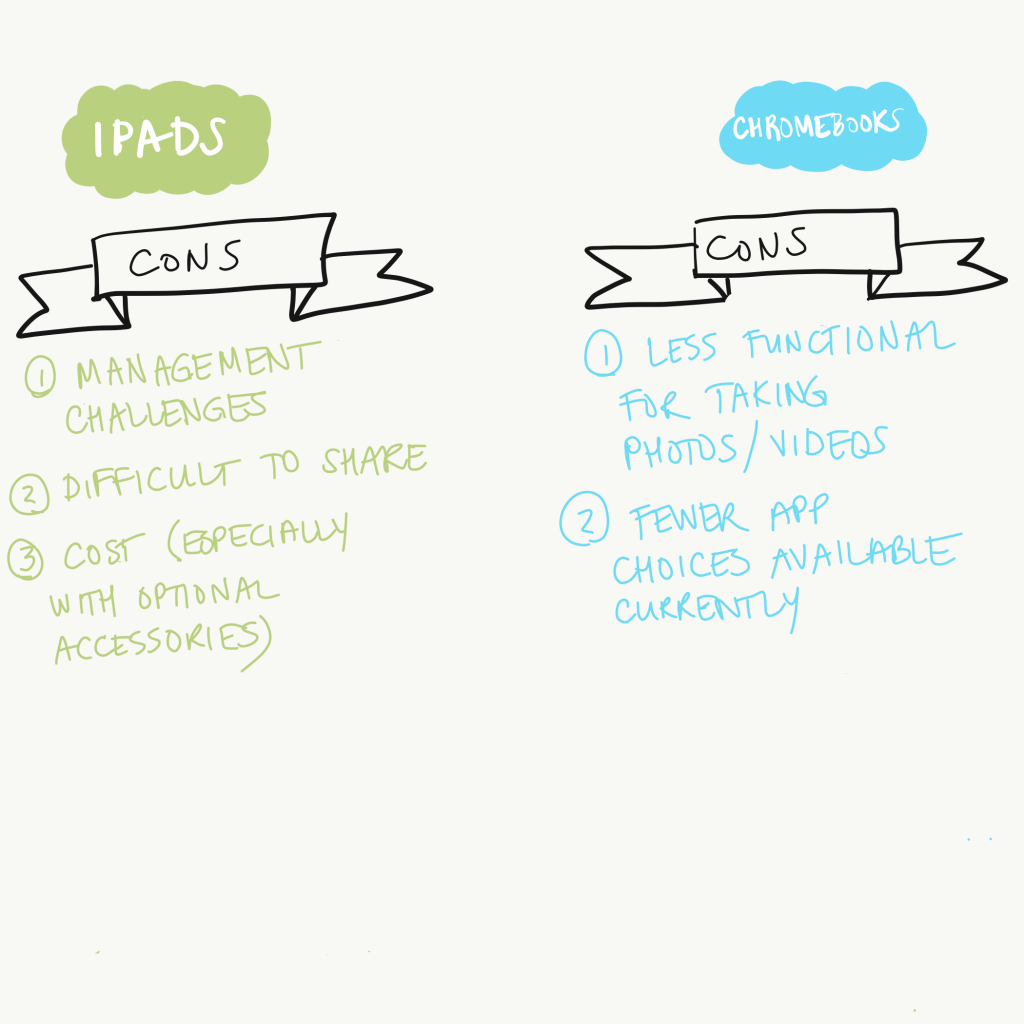 IPADS
CONS
1 MANAGEMENT
CHALLENGES
2 DIFFICULT TO SHARE
3 COST (ESPECIALLY
WITH OPTIONAL
ACCESSORIES)
CHROMEBOOKS
CONS
1 LESS FUNCTIONAL
FOR TAKING
PHOTOS/VIDEOS
2 FEWER APP
CHOICES AVAILABLE
CURRENTLY